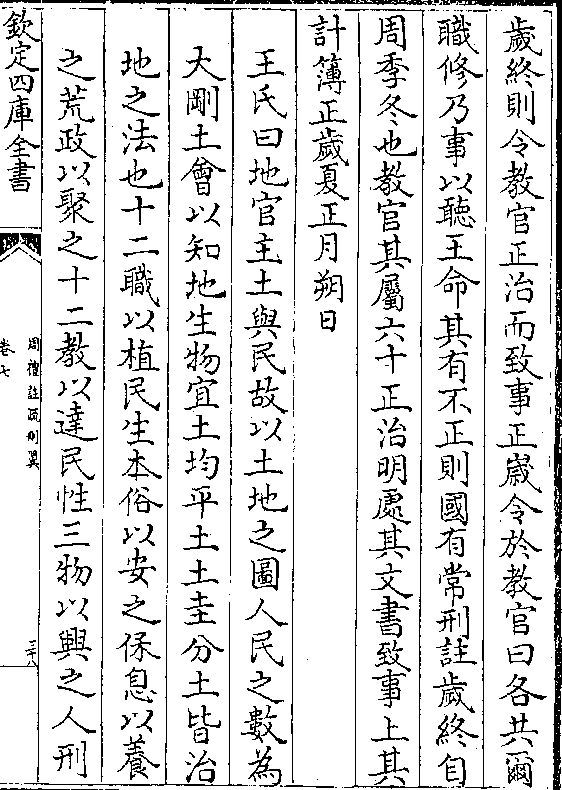 歲終則令教官正治而致事正歲令於教官曰各共爾
職修乃事以聽王命其有不正則國有常刑註歲終自
周季冬也教官其屬六十正治明處其文書致事上其
計簿正歲夏正月朔日
王氏曰地官主土與民故以土地之圖人民之數為
大剛土㑹以知地生物宜土均平土土圭分土皆治
地之法也十二職以植民生本俗以安之保息以養
之荒政以聚之十二教以達民性三物以興之人刑
欽定四庫全書
周禮註疏刪翼
卷七
三十八